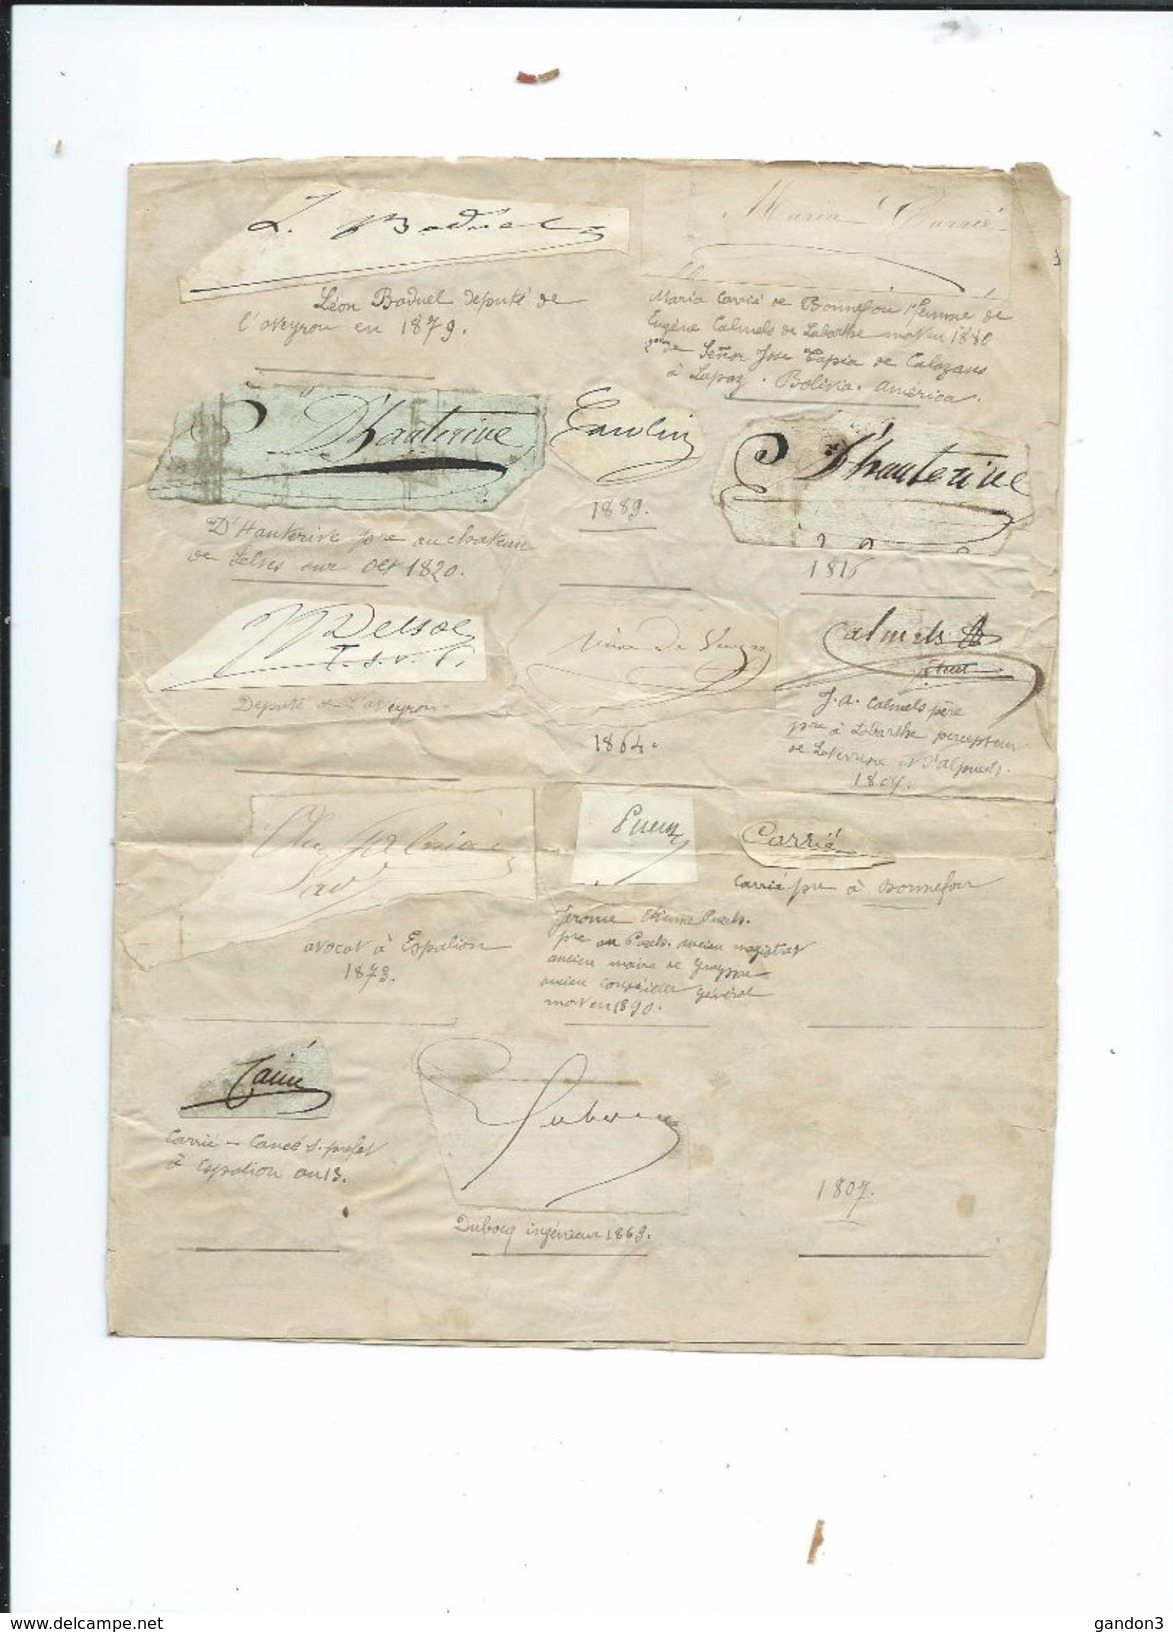 L. Baduel
Léon Baduel député de
l'aveyron en 1879.
Maria Carrié
Maria Carrié de Bonnefou femme de
Eugène Calmels de Labarthe mort en 1880
Señor Jose Tapia de Calazans
à Lapaz. Bolivia. América.
D'hauterive
D'Hauterive pre au chateau
de Selves sur 1820.
1889.
D'hauterive
1816
Delsol
T.S.V.P.
Député de l'aveyron.
1864.
Calmels
J. A. Calmels père
pre à Labarthe percepteur
de et d'
avocat à Espalion
1873.
Puech
Jérome Etienne Puech.
pre au Puech. ancien magistrat
ancien maire de
ancien conseiller général
mort en 1890.
Carrié
Carrié pre à Bonnefou
Carrié
Carrié - Cancé S. prefet
à Espalion an 13.
Dubocq ingénieur 1869.
1807.
www.delcampe.net
gandon3